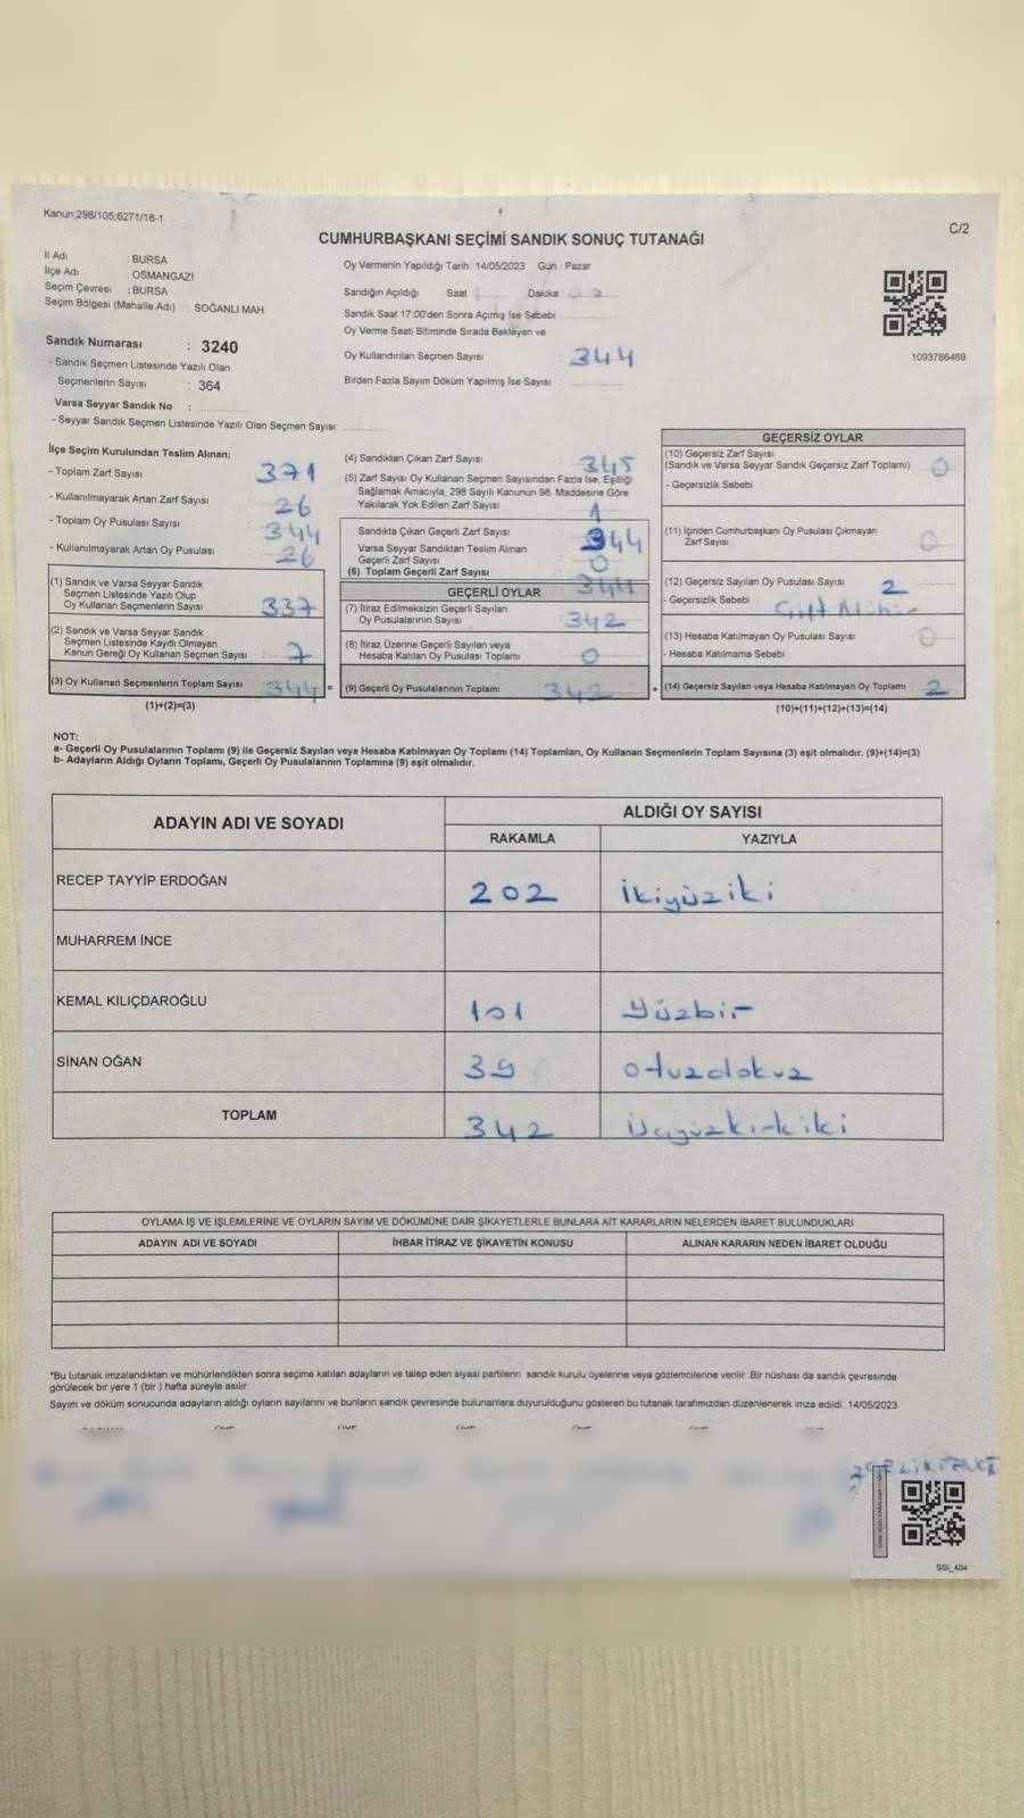 Kanun:298/105;6271/18-1
C/2
CUMHURBAŞKANI SEÇİMİ SANDIK SONUÇ TUTANAĞI
İl Adı BURSA
İlçe Adı OSMANGAZİ
Seçim Çevresi : BURSA
Seçim Bölgesi (Mahalle Adı) SOĞANLI MAH
Sandık Numarası : 3240
- Sandık Seçmen Listesinde Yazılı Olan
Seçmenlerin Sayısı : 364
Varsa Seyyar Sandık No :
- Seyyar Sandık Seçmen Listesinde Yazılı Olan Seçmen Sayısı
Oy Vermenin Yapıldığı Tarih 14/05/2023 Gün Pazar
Sandığın Açıldığı Saat Dakika
Sandık Saat 17:00'den Sonra Açılmış İse Sebebi
Oy Verme Saati Bitiminde Sırada Bekleyen ve
Oy Kullandırılan Seçmen Sayısı 344
Birden Fazla Sayım Döküm Yapılmış İse Sayısı
1093786469
İlçe Seçim Kurulundan Teslim Alınan:
- Toplam Zarf Sayısı 371
- Kullanılmayarak Artan Zarf Sayısı 26
- Toplam Oy Pusulası Sayısı 344
- Kullanılmayarak Artan Oy Pusulası 26
(1) Sandık ve Varsa Seyyar Sandık
Seçmen Listesinde Yazılı Olup
Oy Kullanan Seçmenlerin Sayısı 337
(2) Sandık ve Varsa Seyyar Sandık
Seçmen Listesinde Kayıtlı Olmayan
Kanun Gereği Oy Kullanan Seçmen Sayısı 7
(3) Oy Kullanan Seçmenlerin Toplam Sayısı 344 =
(1)+(2)=(3)
(4) Sandıktan Çıkan Zarf Sayısı 345
(5) Zarf Sayısı Oy Kullanan Seçmen Sayısından Fazla İse, Eşitliği
Sağlamak Amacıyla, 298 Sayılı Kanunun 98. Maddesine Göre
Yakılarak Yok Edilen Zarf Sayısı 1
Sandıkta Çıkan Geçerli Zarf Sayısı 344
Varsa Seyyar Sandıktan Teslim Alınan
Geçerli Zarf Sayısı 0
(6) Toplam Geçerli Zarf Sayısı 344
GEÇERLİ OYLAR
(7) İtiraz Edilmeksizin Geçerli Sayılan
Oy Pusulalarının Sayısı 342
(8) İtiraz Üzerine Geçerli Sayılan veya
Hesaba Katılan Oy Pusulası Toplamı 0
(9) Geçerli Oy Pusulalarının Toplamı 342 +
GEÇERSİZ OYLAR
(10) Geçersiz Zarf Sayısı
(Sandık ve Varsa Seyyar Sandık Geçersiz Zarf Toplamı) 0
- Geçersizlik Sebebi
(11) İçinden Cumhurbaşkanı Oy Pusulası Çıkmayan
Zarf Sayısı 0
(12) Geçersiz Sayılan Oy Pusulası Sayısı 2
- Geçersizlik Sebebi
(13) Hesaba Katılmayan Oy Pusulası Sayısı 0
- Hesaba Katılmama Sebebi
(14) Geçersiz Sayılan veya Hesaba Katılmayan Oy Toplamı 2
(10)+(11)+(12)+(13)=(14)
NOT:
a- Geçerli Oy Pusulalarının Toplamı (9) ile Geçersiz Sayılan veya Hesaba Katılmayan Oy Toplamı (14) Toplamları, Oy Kullanan Seçmenlerin Toplam Sayısına (3) eşit olmalıdır. (9)+(14)=(3)
b- Adayların Aldığı Oyların Toplamı, Geçerli Oy Pusulalarının Toplamına (9) eşit olmalıdır.
ADAYIN ADI VE SOYADI ALDIĞI OY SAYISI
RAKAMLA YAZIYLA
RECEP TAYYİP ERDOĞAN 202 İkiyüziki
MUHARREM İNCE
KEMAL KILIÇDAROĞLU 101 Yüzbir
SİNAN OĞAN 39 otuzdokuz
TOPLAM 342 üçyüzkırkiki
OYLAMA İŞ VE İŞLEMLERİNE VE OYLARIN SAYIM VE DÖKÜMÜNE DAİR ŞİKAYETLERLE BUNLARA AİT KARARLARIN NELERDEN İBARET BULUNDUKLARI
ADAYIN ADI VE SOYADI İHBAR İTİRAZ VE ŞİKAYETİN KONUSU ALINAN KARARIN NEDEN İBARET OLDUĞU
*Bu tutanak imzalandıktan ve mühürlendikten sonra seçime katılan adayların ve talep eden siyasi partilerin sandık kurulu üyelerine veya gözlemcilerine verilir. Bir nüshası da sandık çevresinde
görülecek bir yere 1 (bir ) hafta süreyle asılır.
Sayım ve döküm sonucunda adayların aldığı oyların sayılarını ve bunların sandık çevresinde bulunanlara duyurulduğunu gösteren bu tutanak tarafımızdan düzenlenerek imza edildi. 14/05/2023